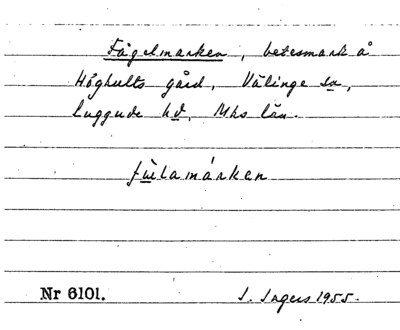 Fågelmarken, betesmark å
Höghults gård, Välinge sn,
Luggude hd, Mhs län.
fùlamárken
Nr 6101. I. Ingers 1955.